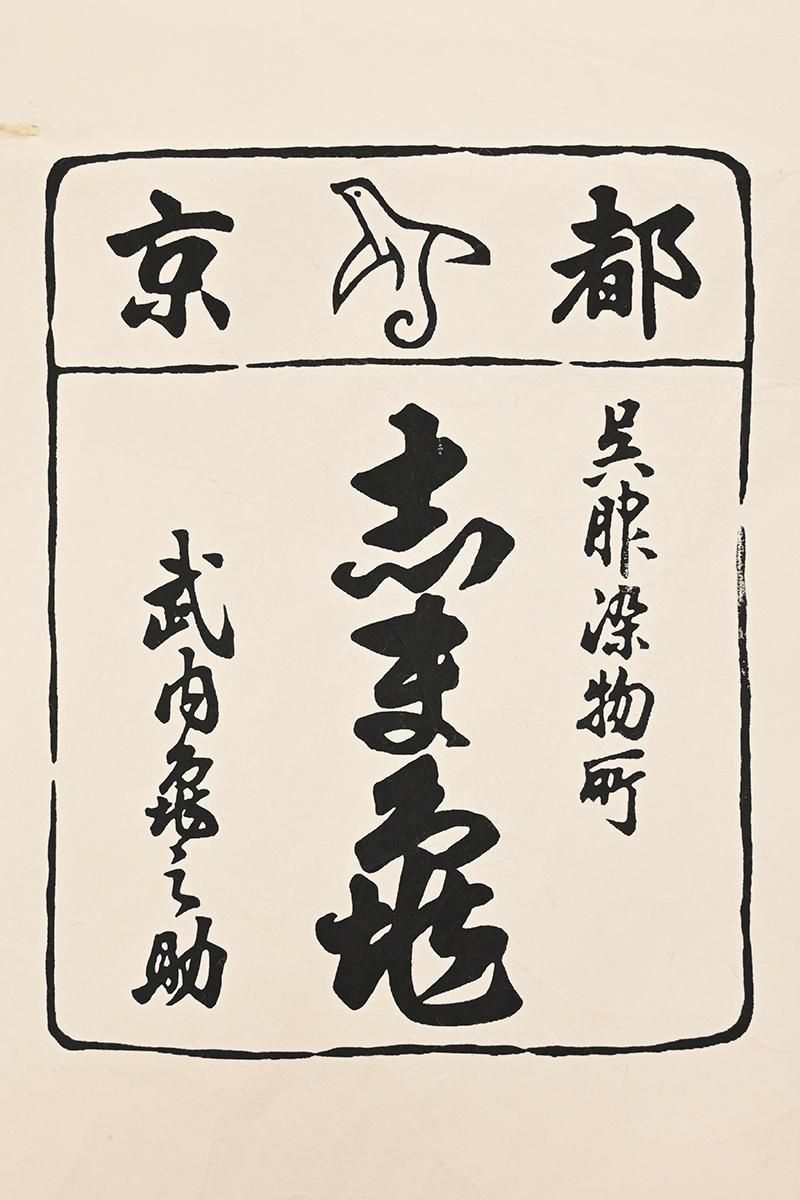 京都
呉服染物所
志ま亀
武内亀之助